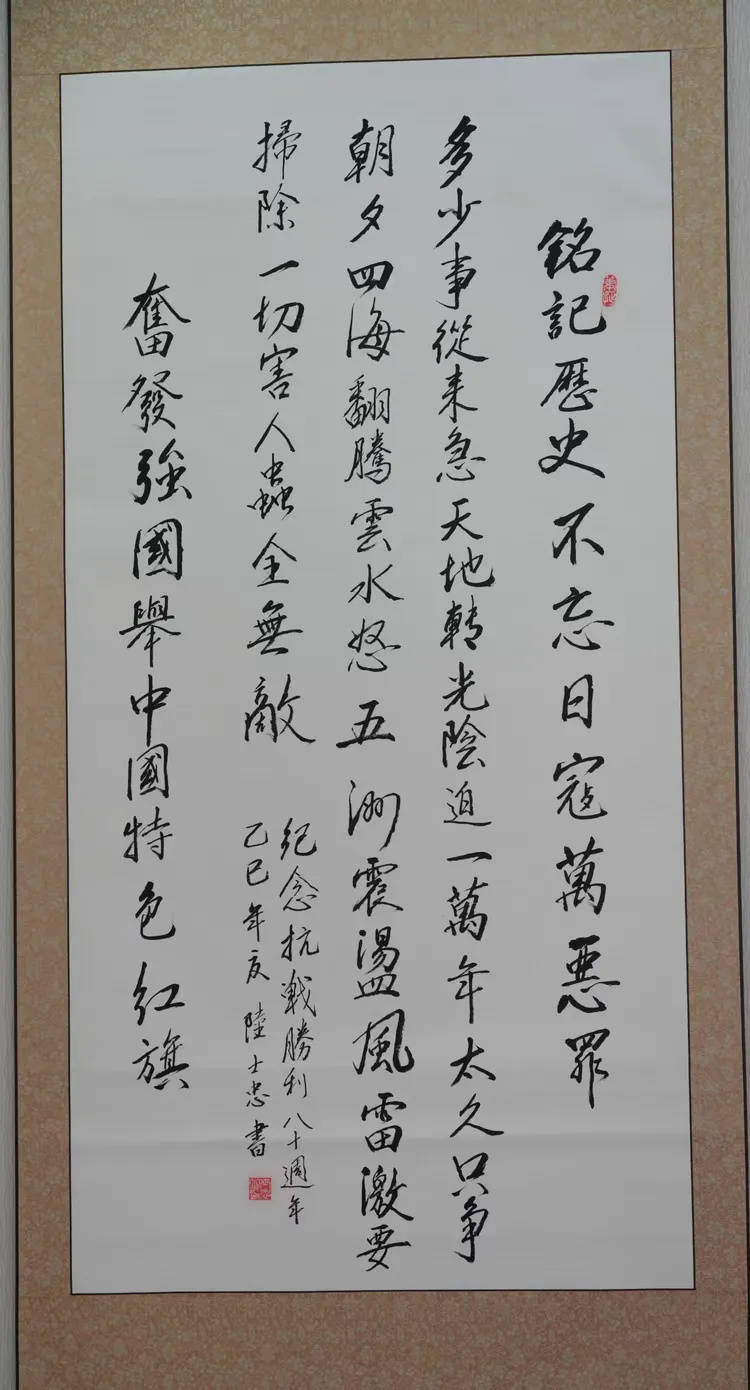 銘記歷史不忘日寇萬惡罪
多少事從来急天地轉光陰迫一萬年太久只争
朝夕四海翻騰雲水怒五洲震盪風雷激要
掃除一切害人蟲全無敵
紀念抗戰勝利八十週年
乙巳年夏陸士忠書
奮發強國舉中國特色红旗